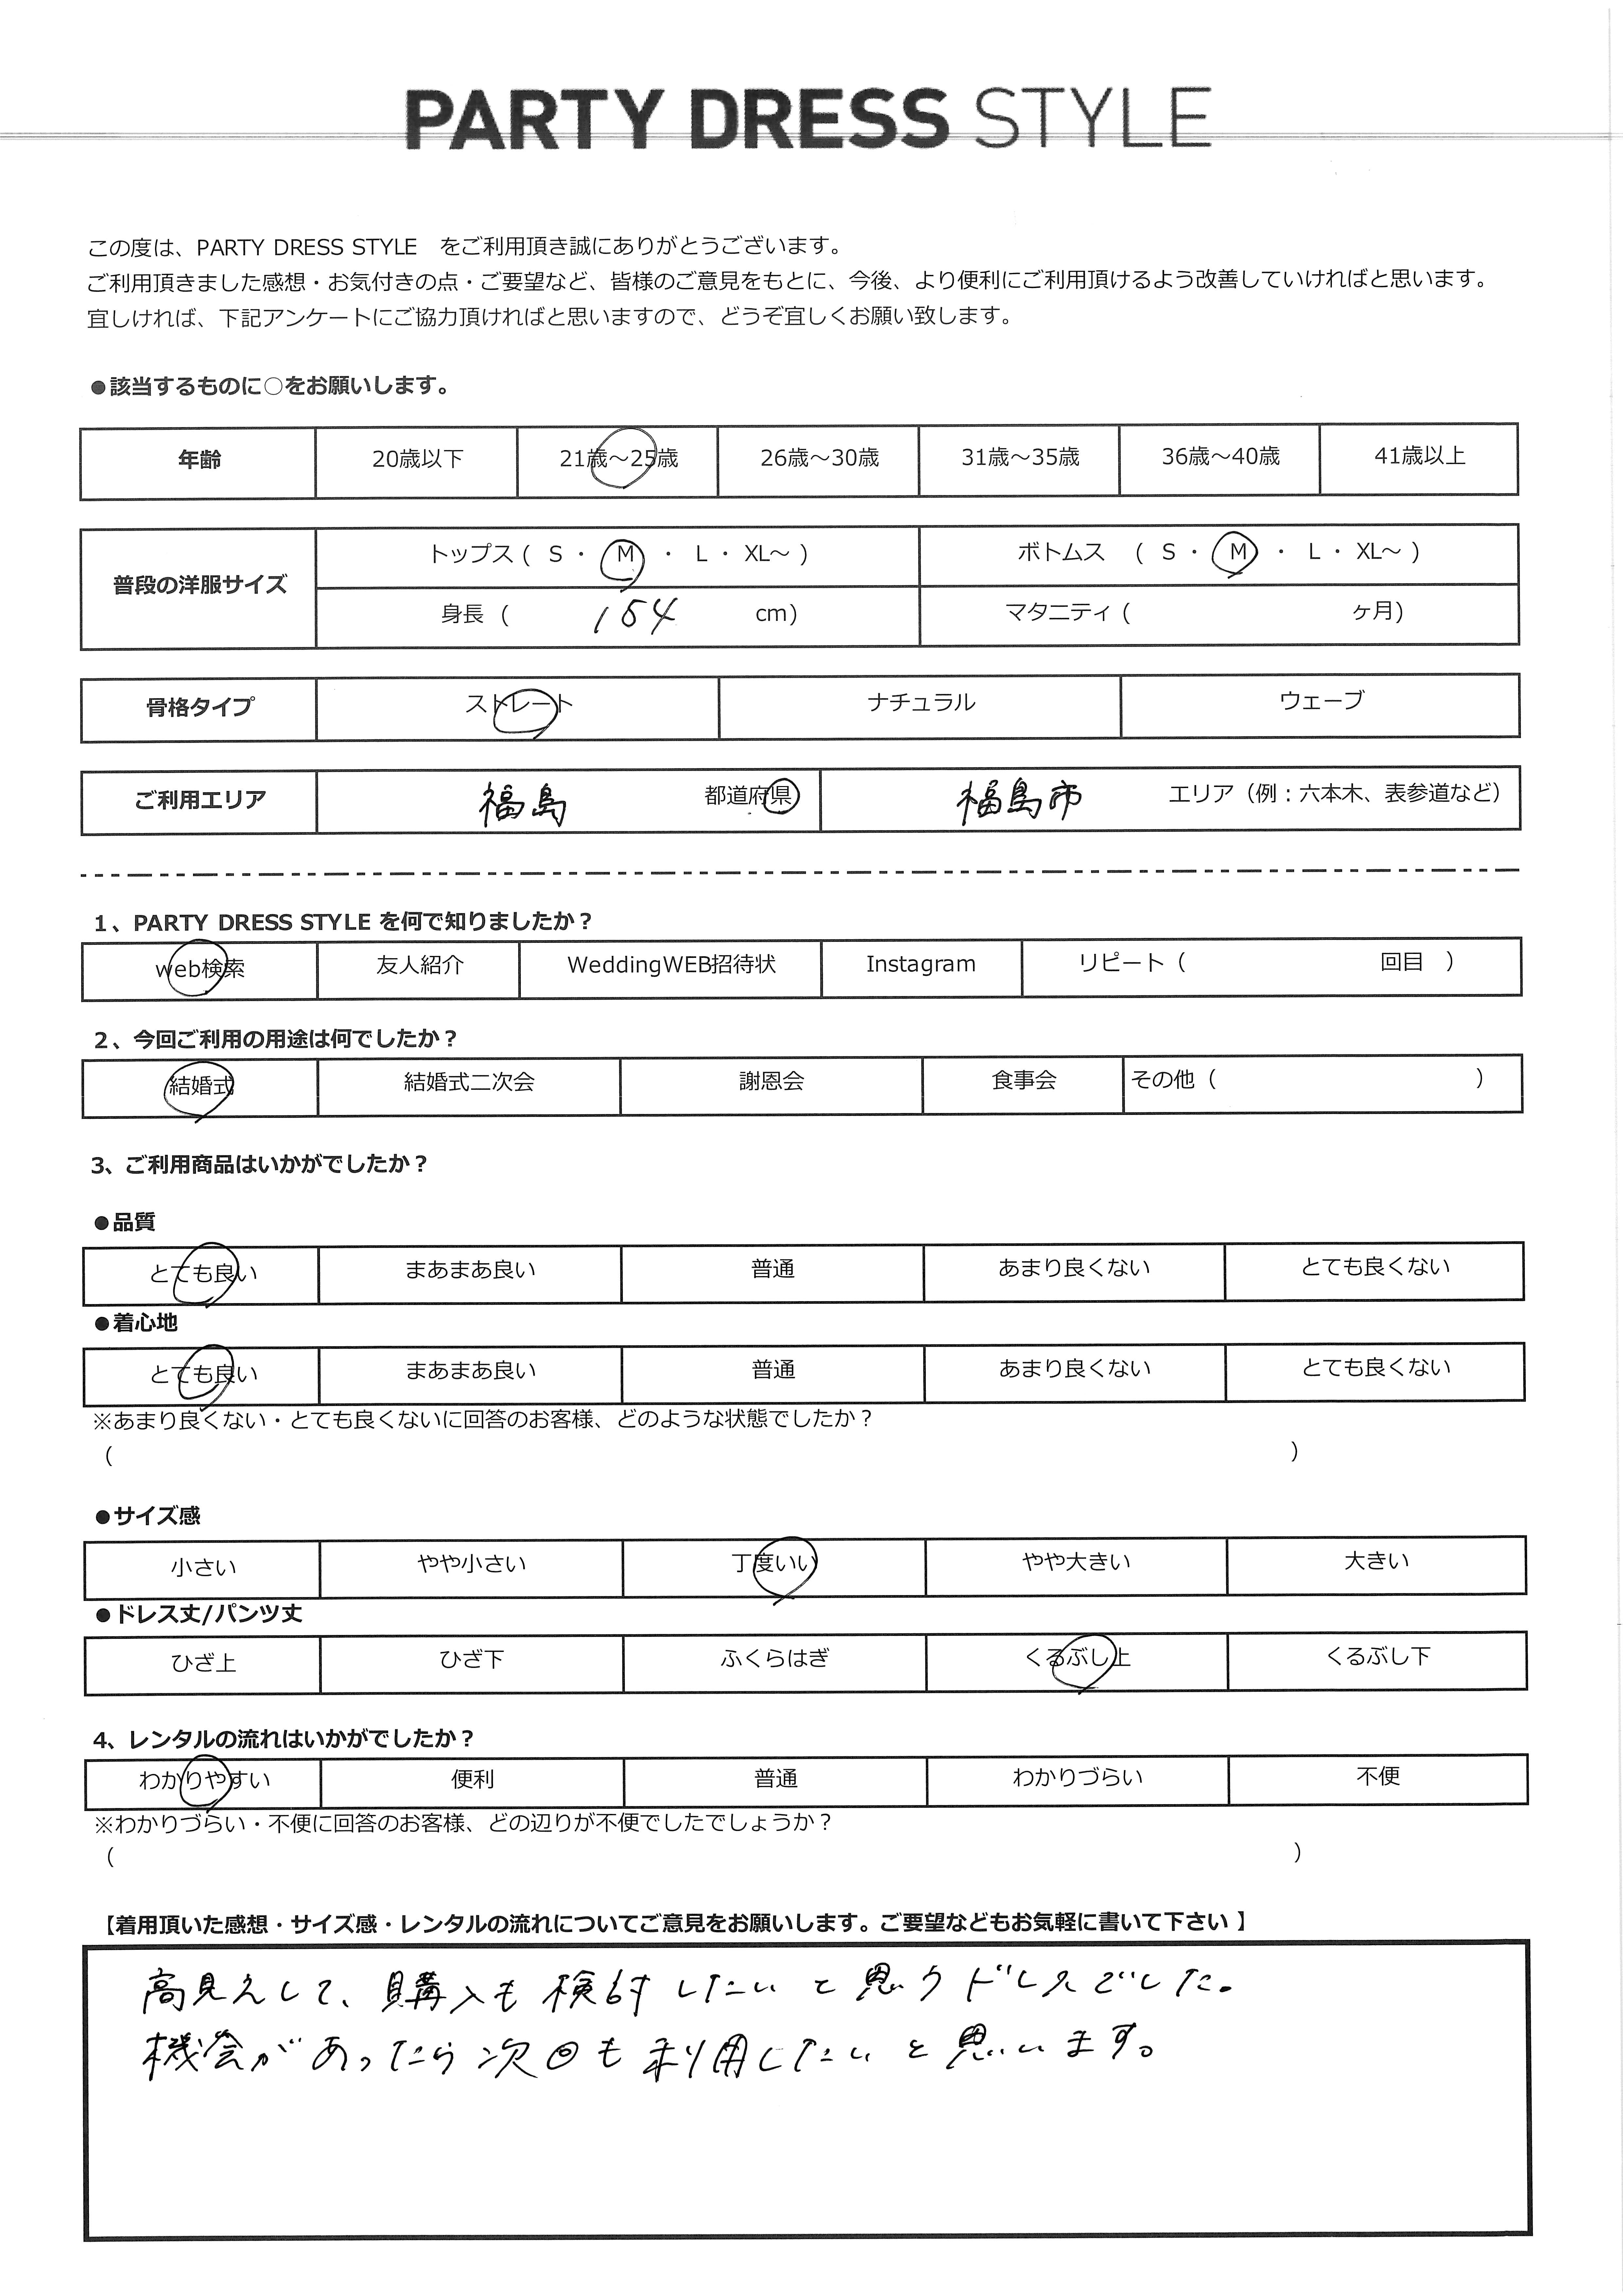 PARTY DRESS STYLE
この度は、PARTY DRESS STYLE　をご利用頂き誠にありがとうございます。
ご利用頂きました感想・お気付きの点・ご要望など、皆様のご意見をもとに、今後、より便利にご利用頂けるよう改善していければと思います。
宜しければ、下記アンケートにご協力頂ければと思いますので、どうぞ宜しくお願い致します。
●該当するものに○をお願いします。
年齢 20歳以下 21歳～25歳 26歳～30歳 31歳～35歳 36歳～40歳 41歳以上
普段の洋服サイズ トップス ( S ・ M ・ L ・ XL～ ) ボトムス ( S ・ M ・ L ・ XL～ )
身長 ( 154 cm) マタニティ ( ヶ月)
骨格タイプ ストレート ナチュラル ウェーブ
ご利用エリア 福島 都道府県 福島市 エリア（例：六本木、表参道など）
1、PARTY DRESS STYLE を何で知りましたか？
web検索 友人紹介 WeddingWEB招待状 Instagram リピート（ 回目 ）
2、今回ご利用の用途は何でしたか？
結婚式 結婚式二次会 謝恩会 食事会 その他（ ）
3、ご利用商品はいかがでしたか？
●品質
とても良い まあまあ良い 普通 あまり良くない とても良くない
●着心地
とても良い まあまあ良い 普通 あまり良くない とても良くない
※あまり良くない・とても良くないに回答のお客様、どのような状態でしたか？
（ ）
●サイズ感
小さい やや小さい 丁度いい やや大きい 大きい
●ドレス丈/パンツ丈
ひざ上 ひざ下 ふくらはぎ くるぶし上 くるぶし下
4、レンタルの流れはいかがでしたか？
わかりやすい 便利 普通 わかりづらい 不便
※わかりづらい・不便に回答のお客様、どの辺りが不便でしたでしょうか？
（ ）
【着用頂いた感想・サイズ感・レンタルの流れについてご意見をお願いします。ご要望などもお気軽に書いて下さい 】
高見えして、購入も検討したいと思うドレスでした。
機会があったら次回も利用したいと思います。